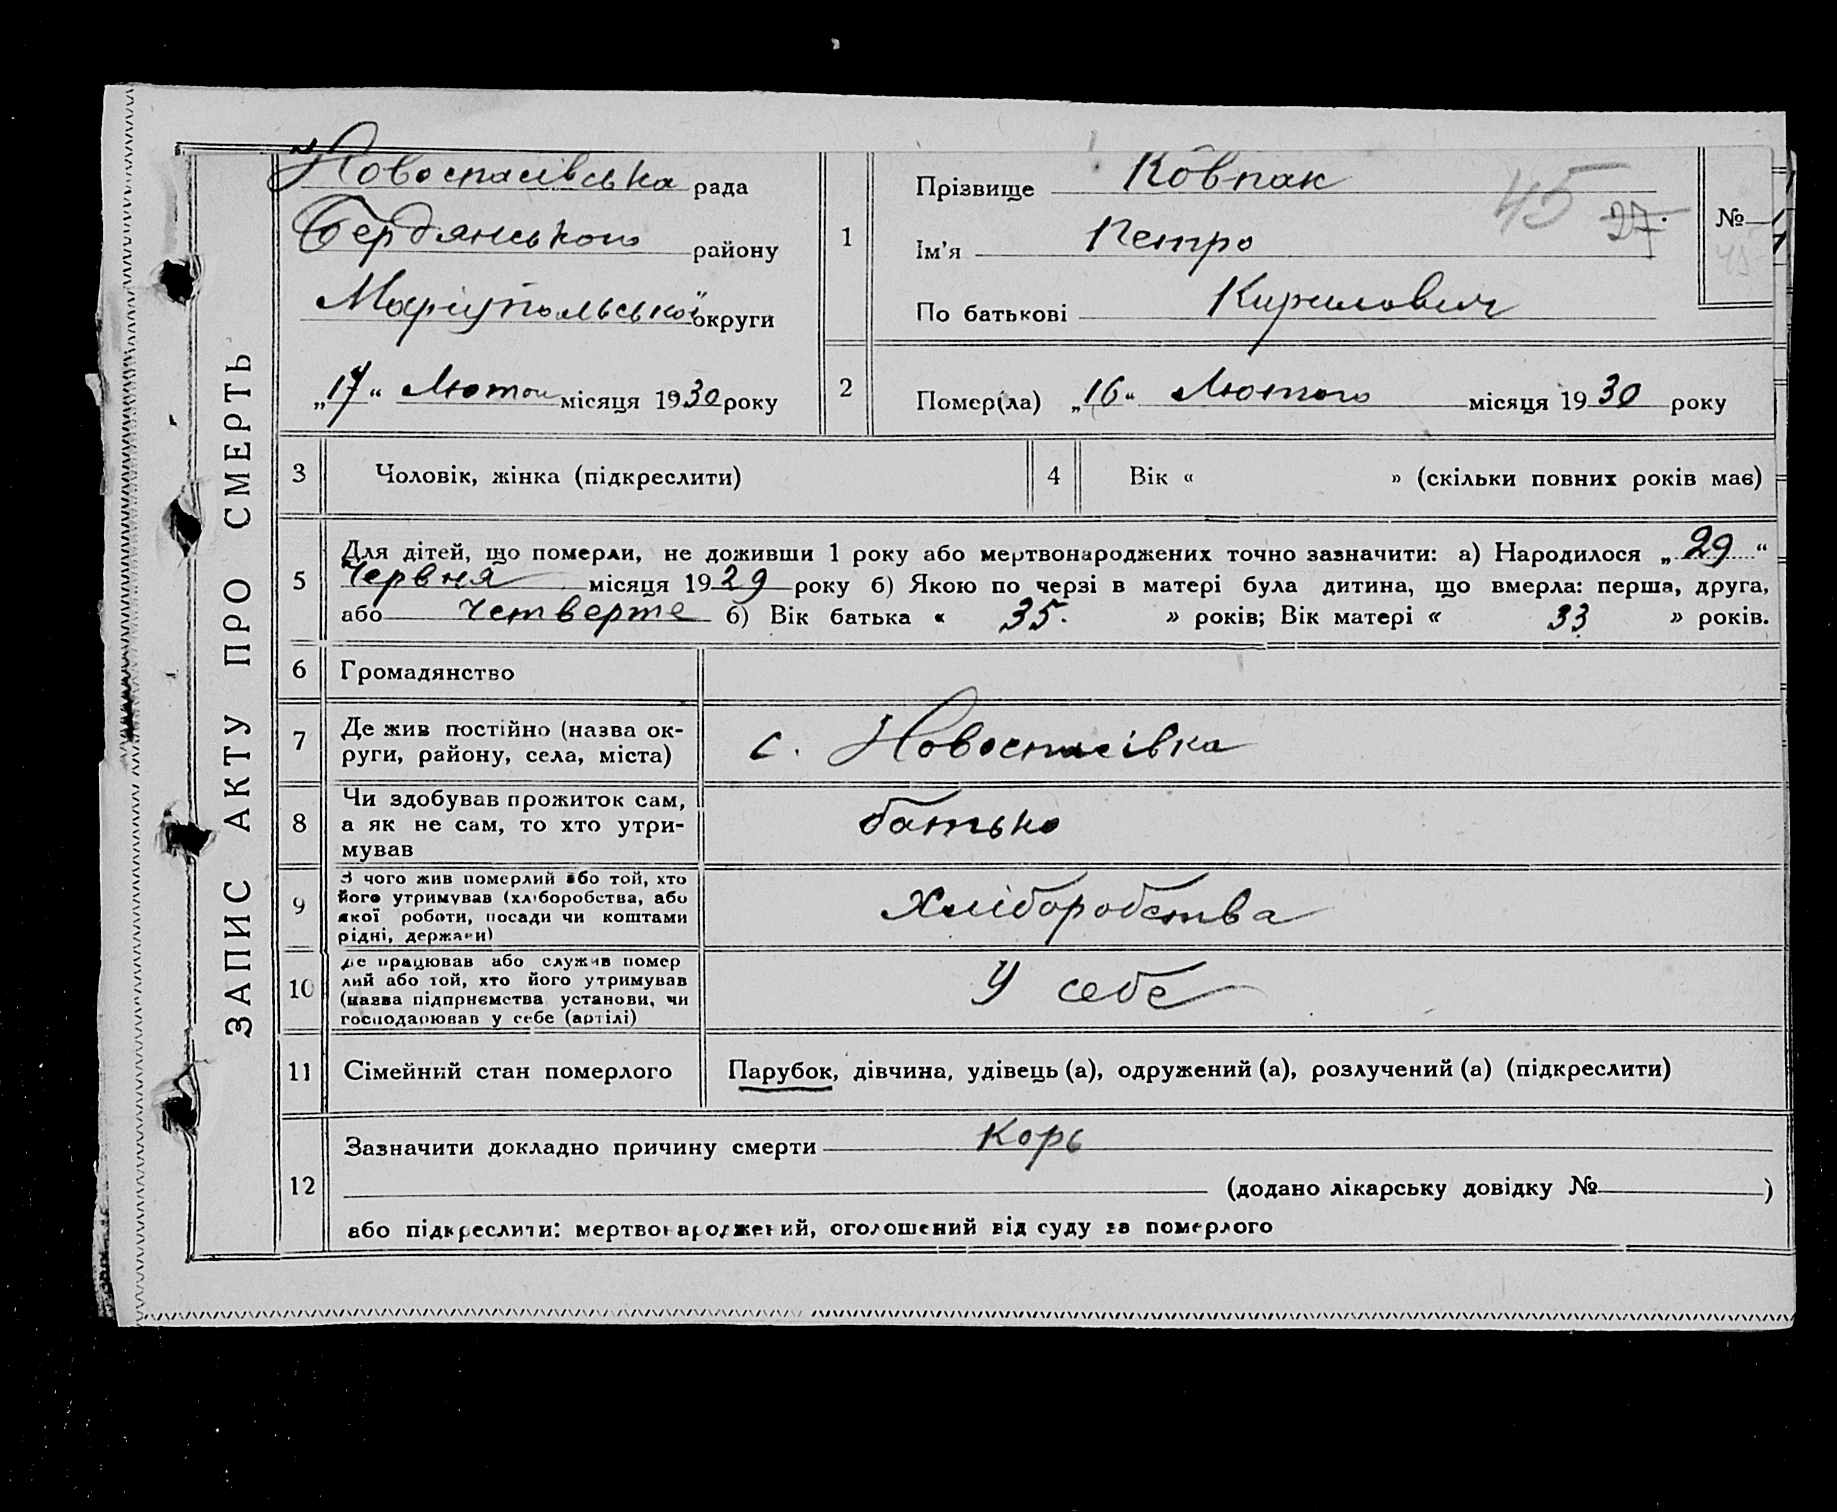 ЗАПИС АКТУ ПРО СМЕРТЬ
Новоспасівська рада
Бердянського району
Маріупольської округи
„17“ Лютого місяця 1930 року
1
Прізвище Ковпак
Ім'я Петро
По батькові Кирилович
45
27
№
45
2
Помер(ла) „16“ Лютого місяця 1930 року
3 Чоловік, жінка (підкреслити)
4 Вік « » (скільки повних років має)
5
Для дітей, що померли, не доживши 1 року або мертвонароджених точно зазначити: а) Народилося „29“
Червня місяця 1929 року б) Якою по черзі в матері була дитина, що вмерла: перша, друга,
або четверте б) Вік батька « 35. » років; Вік матері « 33 » років.
6 Громадянство
7
Де жив постійно (назва ок-
руги, району, села, міста)
с. Новоспасівка
8
Чи здобував прожиток сам,
а як не сам, то хто утри-
мував
батько
9
З чого жив померлий або той, хто
його утримував (хліборобства, або
якої роботи, посади чи коштами
рідні, держави)
Хліборобства
10
Де працював або служив помер
лий або той, хто його утримував
(назва підприємства установи, чи
господарював у себе (артілі)
У себе
11 Сімейний стан померлого
Парубок, дівчина, удівець (а), одружений (а), розлучений (а) (підкреслити)
12
Зазначити докладно причину смерти Корь
(додано лікарську довідку № )
або підкреслити: мертвонароджений, оголошений від суду за померлого